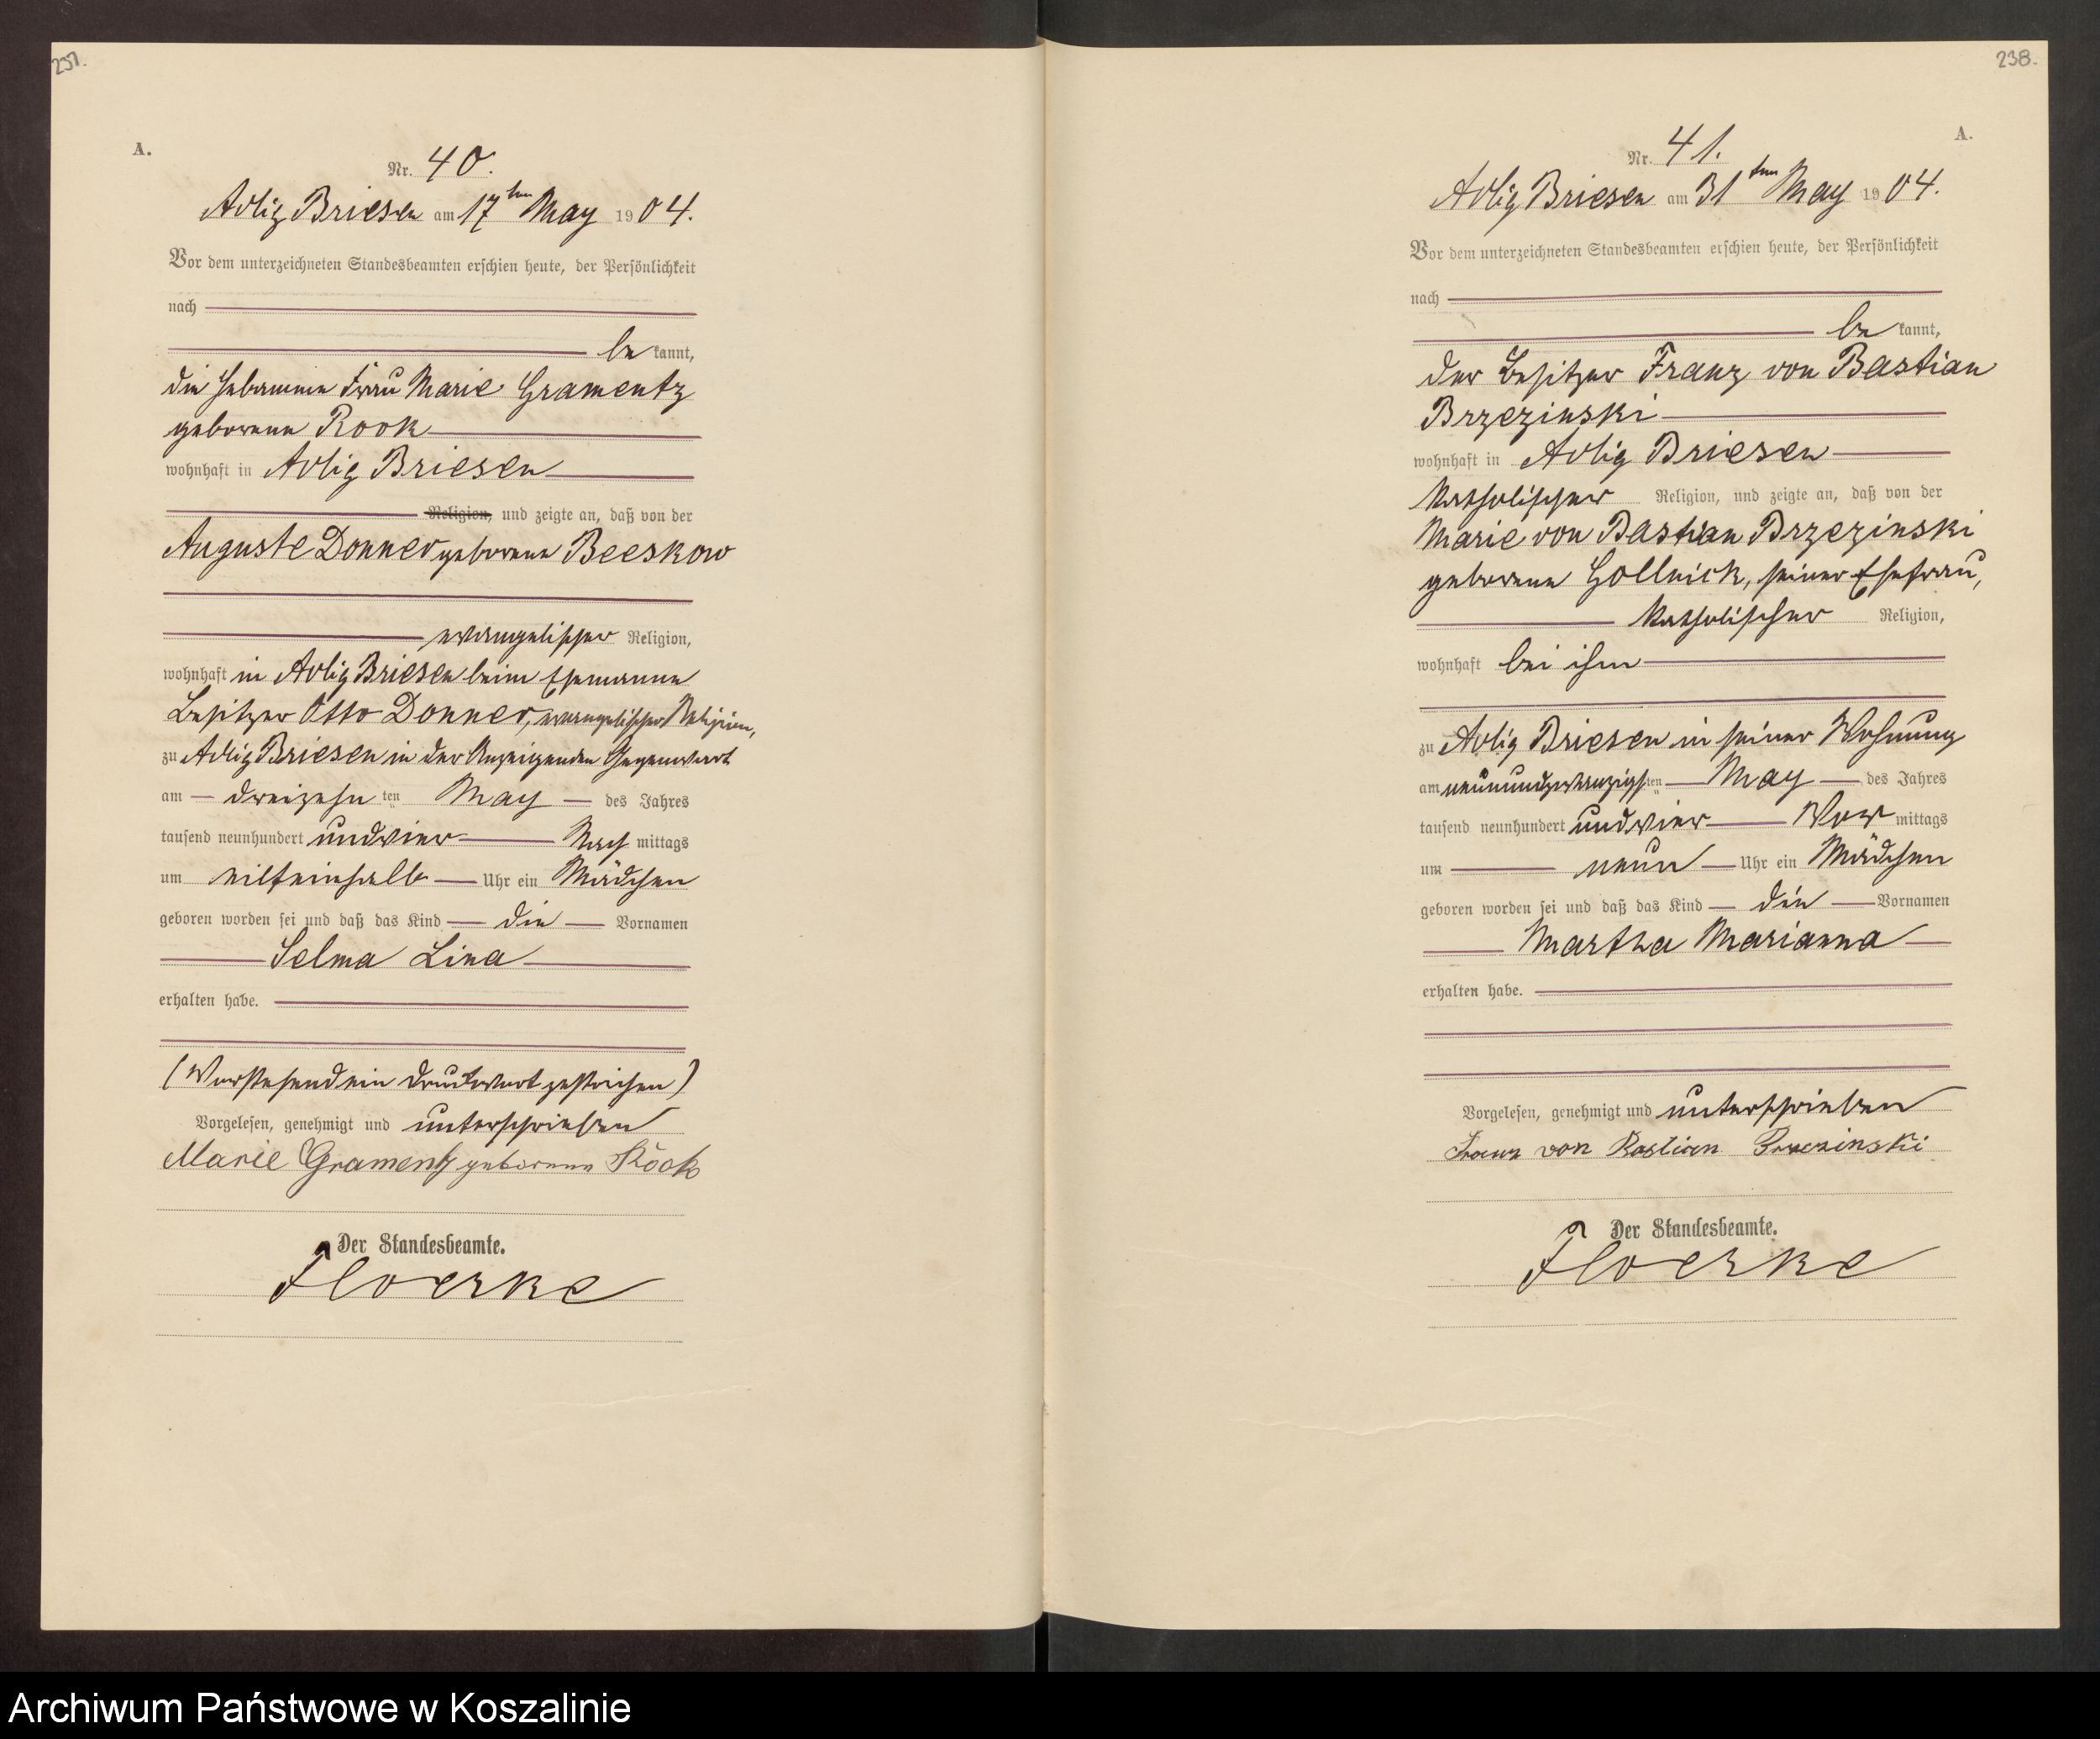 237.
A.
Nr. 40.
Adlig Briesen am 17ten May 1904.
Vor dem unterzeichneten Standesbeamten erschien heute, der Persönlichkeit
nach
be kannt,
die Hebamme Frau Marie Gramentz
geborene Rook
wohnhaft in Adlig Briesen
Religion, und zeigte an, daß von der
Auguste Donner geborene Beeskow
evangelischer Religion,
wohnhaft in Adlig Briesen beim Ehemanne
Besitzer Otto Donner, evangelischer Religion,
zu Adlig Briesen in der Anzeigenden Gegenwart
am dreizehn ten May des Jahres
tausend neunhundert undvier Nach mittags
um eilfeinhalb Uhr ein Mädchen
geboren worden sei und daß das Kind die Vornamen
Selma Lina
erhalten habe.
(Vorstehend ein Druckwort gestrichen)
Vorgelesen, genehmigt und unterschrieben
Marie Gramentz geborene Röök
Der Standesbeamte.
Floerke
238.
A.
Nr. 41.
Adlig Briesen am 31ten May 1904.
Vor dem unterzeichneten Standesbeamten erschien heute, der Persönlichkeit
nach
be kannt,
der Besitzer Franz von Bastian
Brzezinski
wohnhaft in Adlig Briesen
katholischer Religion, und zeigte an, daß von der
Marie von Bastian Brzezinski
geborene Gollnick, seiner Ehefrau,
katholischer Religion,
wohnhaft bei ihm
zu Adlig Briesen in seiner Wohnung
am neunundzwanzigsten May des Jahres
tausend neunhundert undvier Vor mittags
um neun Uhr ein Mädchen
geboren worden sei und daß das Kind die Vornamen
Martha Marianna
erhalten habe.
Vorgelesen, genehmigt und unterschrieben
Franz von Bastian Brzezinski
Der Standesbeamte.
Floerke
Archiwum Państwowe w Koszalinie